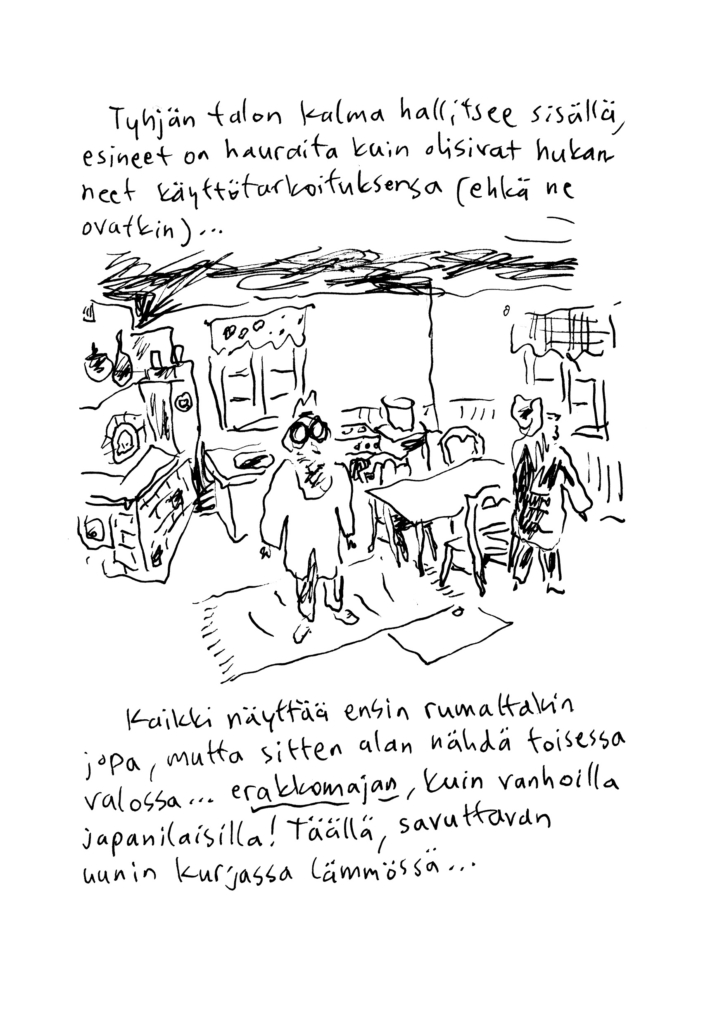 Tyhjän talon kalma hallitsee sisällä,
esineet on hauraita kuin olisivat hukan-
neet käyttötarkoituksensa (ehkä ne
ovatkin)...
Kaikki näyttää ensin rumaltakin
jopa, mutta sitten alan nähdä toisessa
valossa... erakkomajan, kuin vanhoilla
japanilaisilla! Täällä, savuttavan
uunin kurjassa lämmössä...